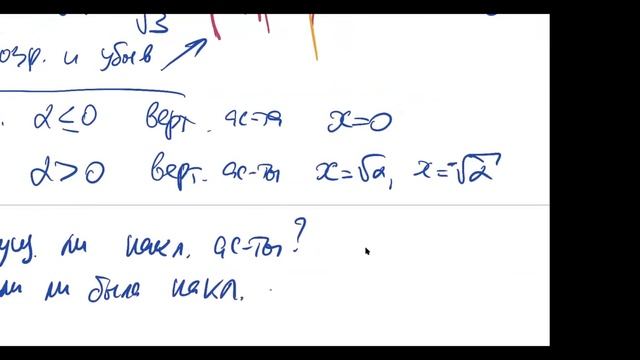 √3
озр. и убыв
. α ≤ 0 верт. ас-та x=0
α > 0 верт. ас-ты x=√α, x=-√α
ли накл. ас-ты?
ли ли была накл.